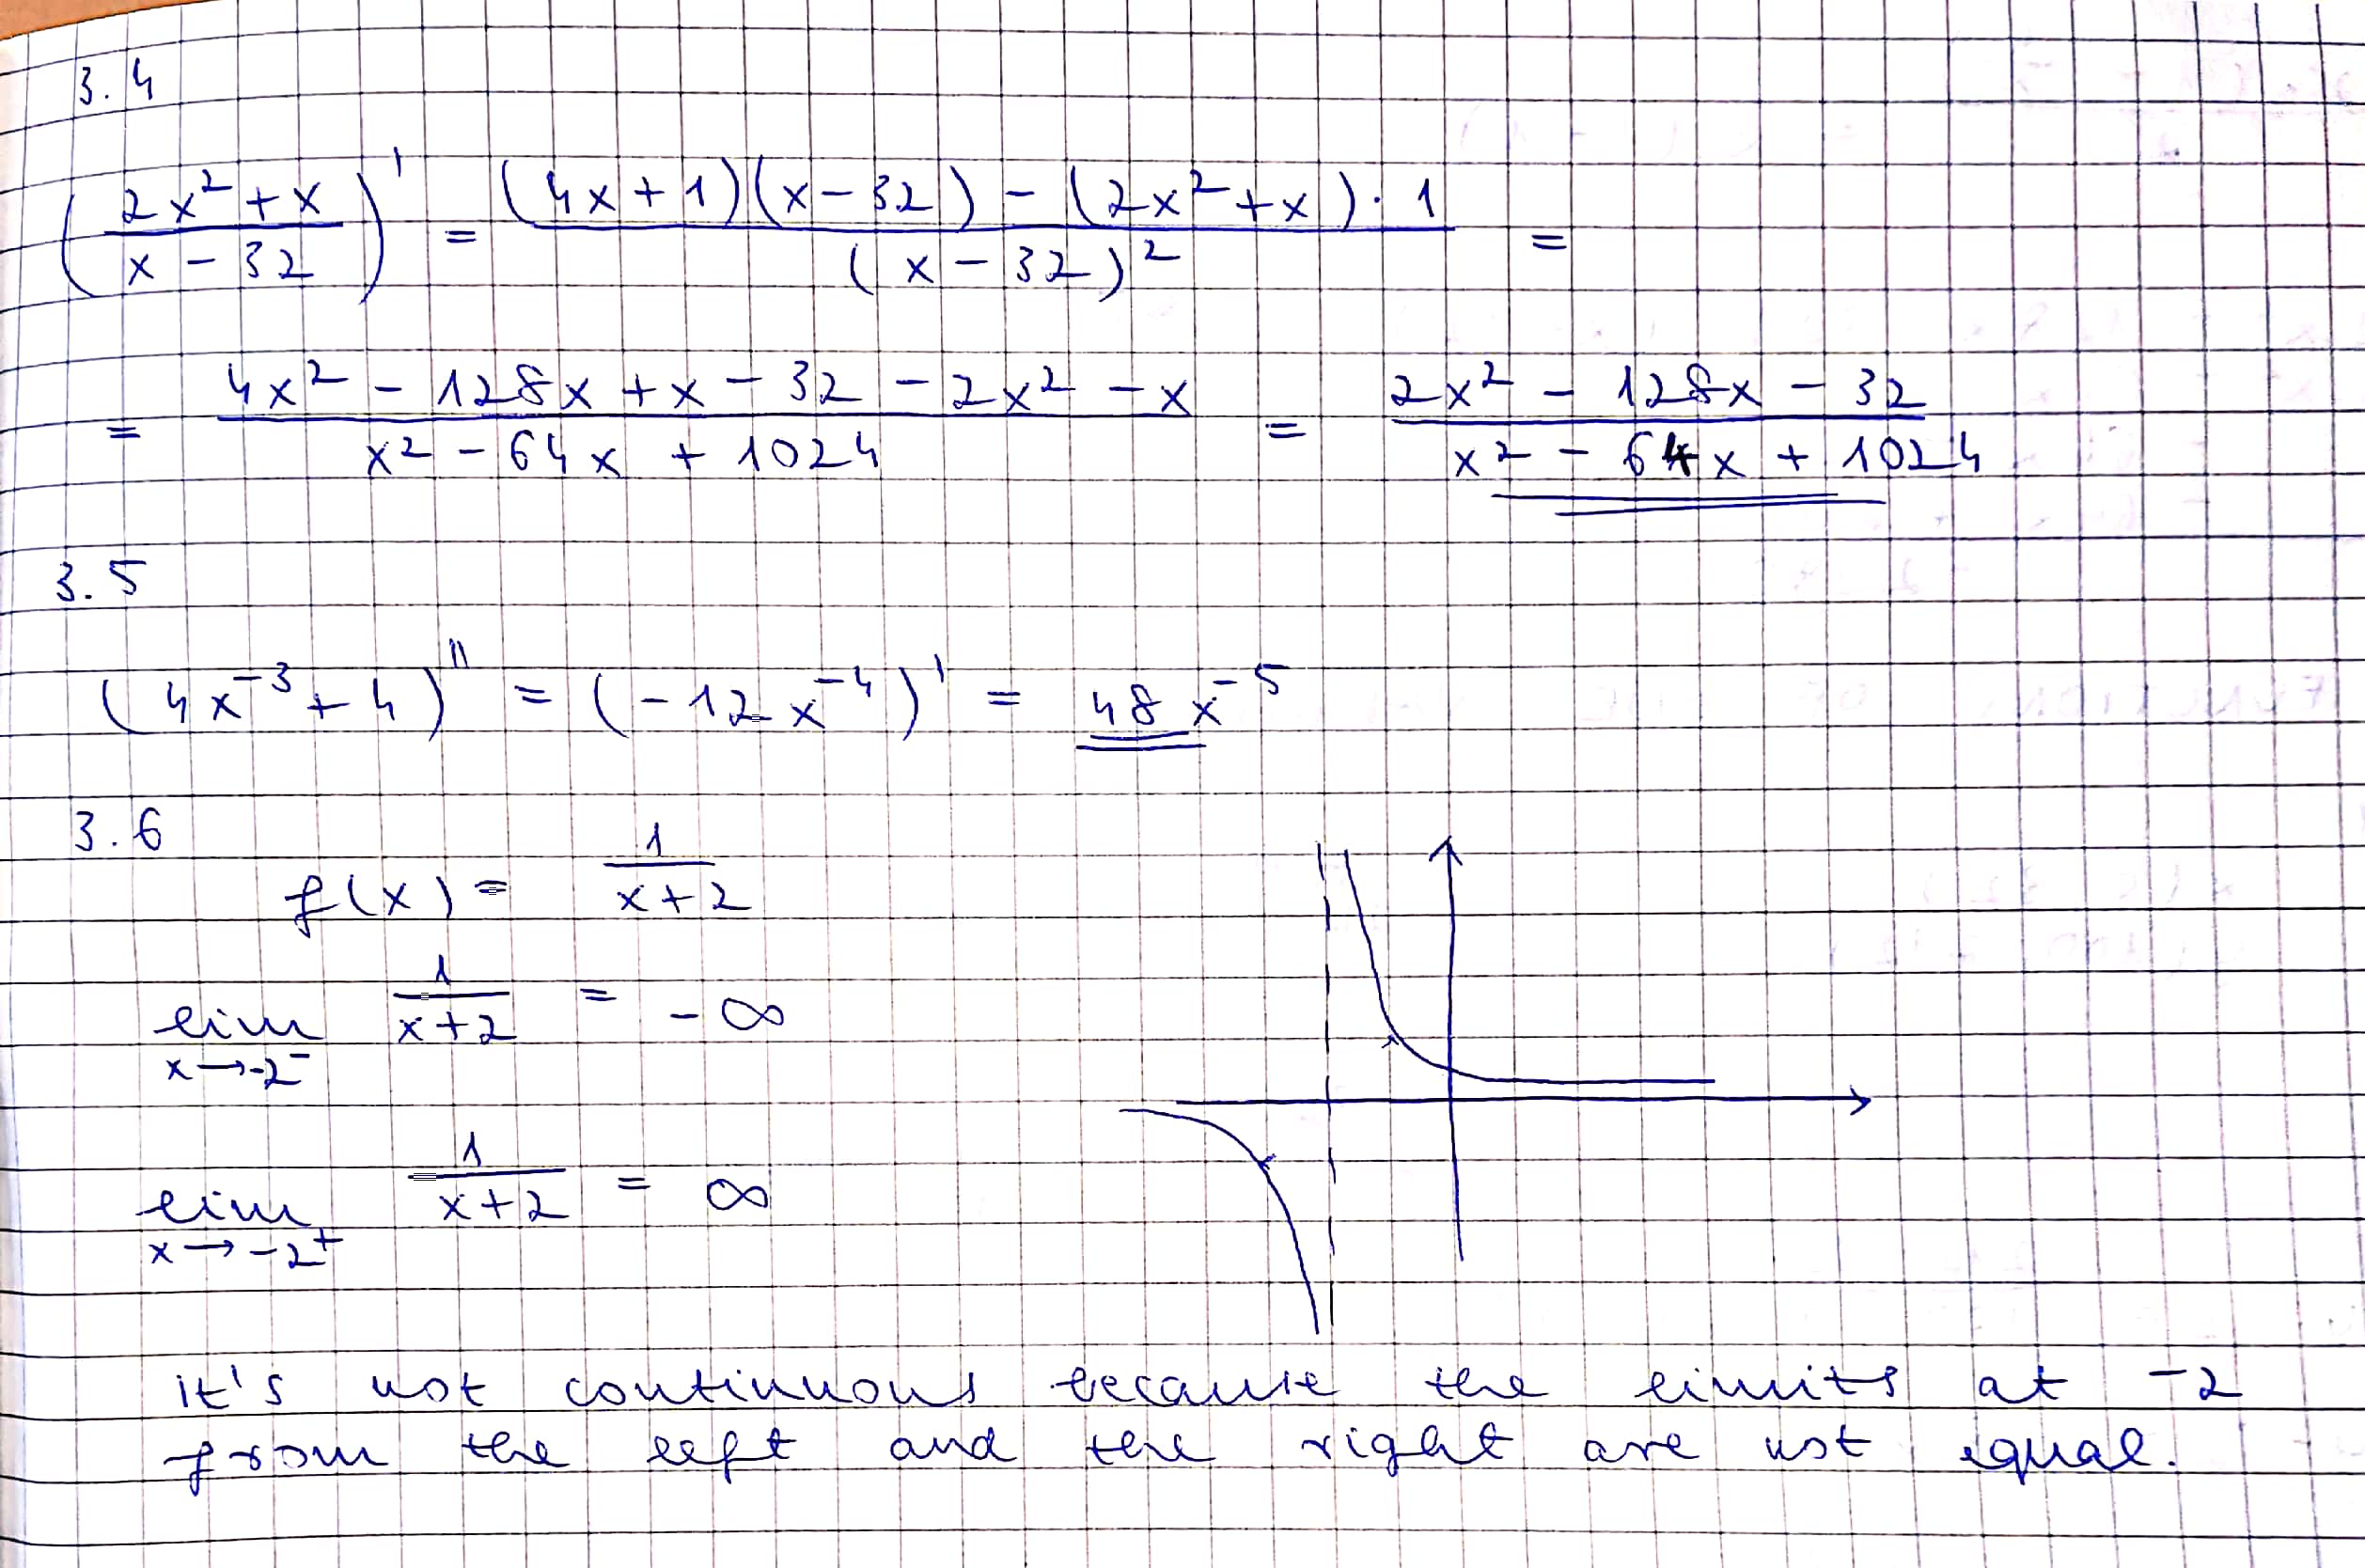 3.4
(2x² + x / x - 32)' = (4x + 1)(x - 32) - (2x² + x) · 1 / (x - 32)² =
= 4x² - 128x + x - 32 - 2x² - x / x² - 64x + 1024 = 2x² - 128x - 32 / x² - 64x + 1024
3.5
(4x⁻³ + 4)'' = (-12x⁻⁴)' = 48x⁻⁵
3.6
f(x) = 1 / x+2
lim x→-2⁻ 1 / x+2 = -∞
lim x→-2⁺ 1 / x+2 = ∞
it's not continuous because the limits at -2
from the left and the right are not equal.